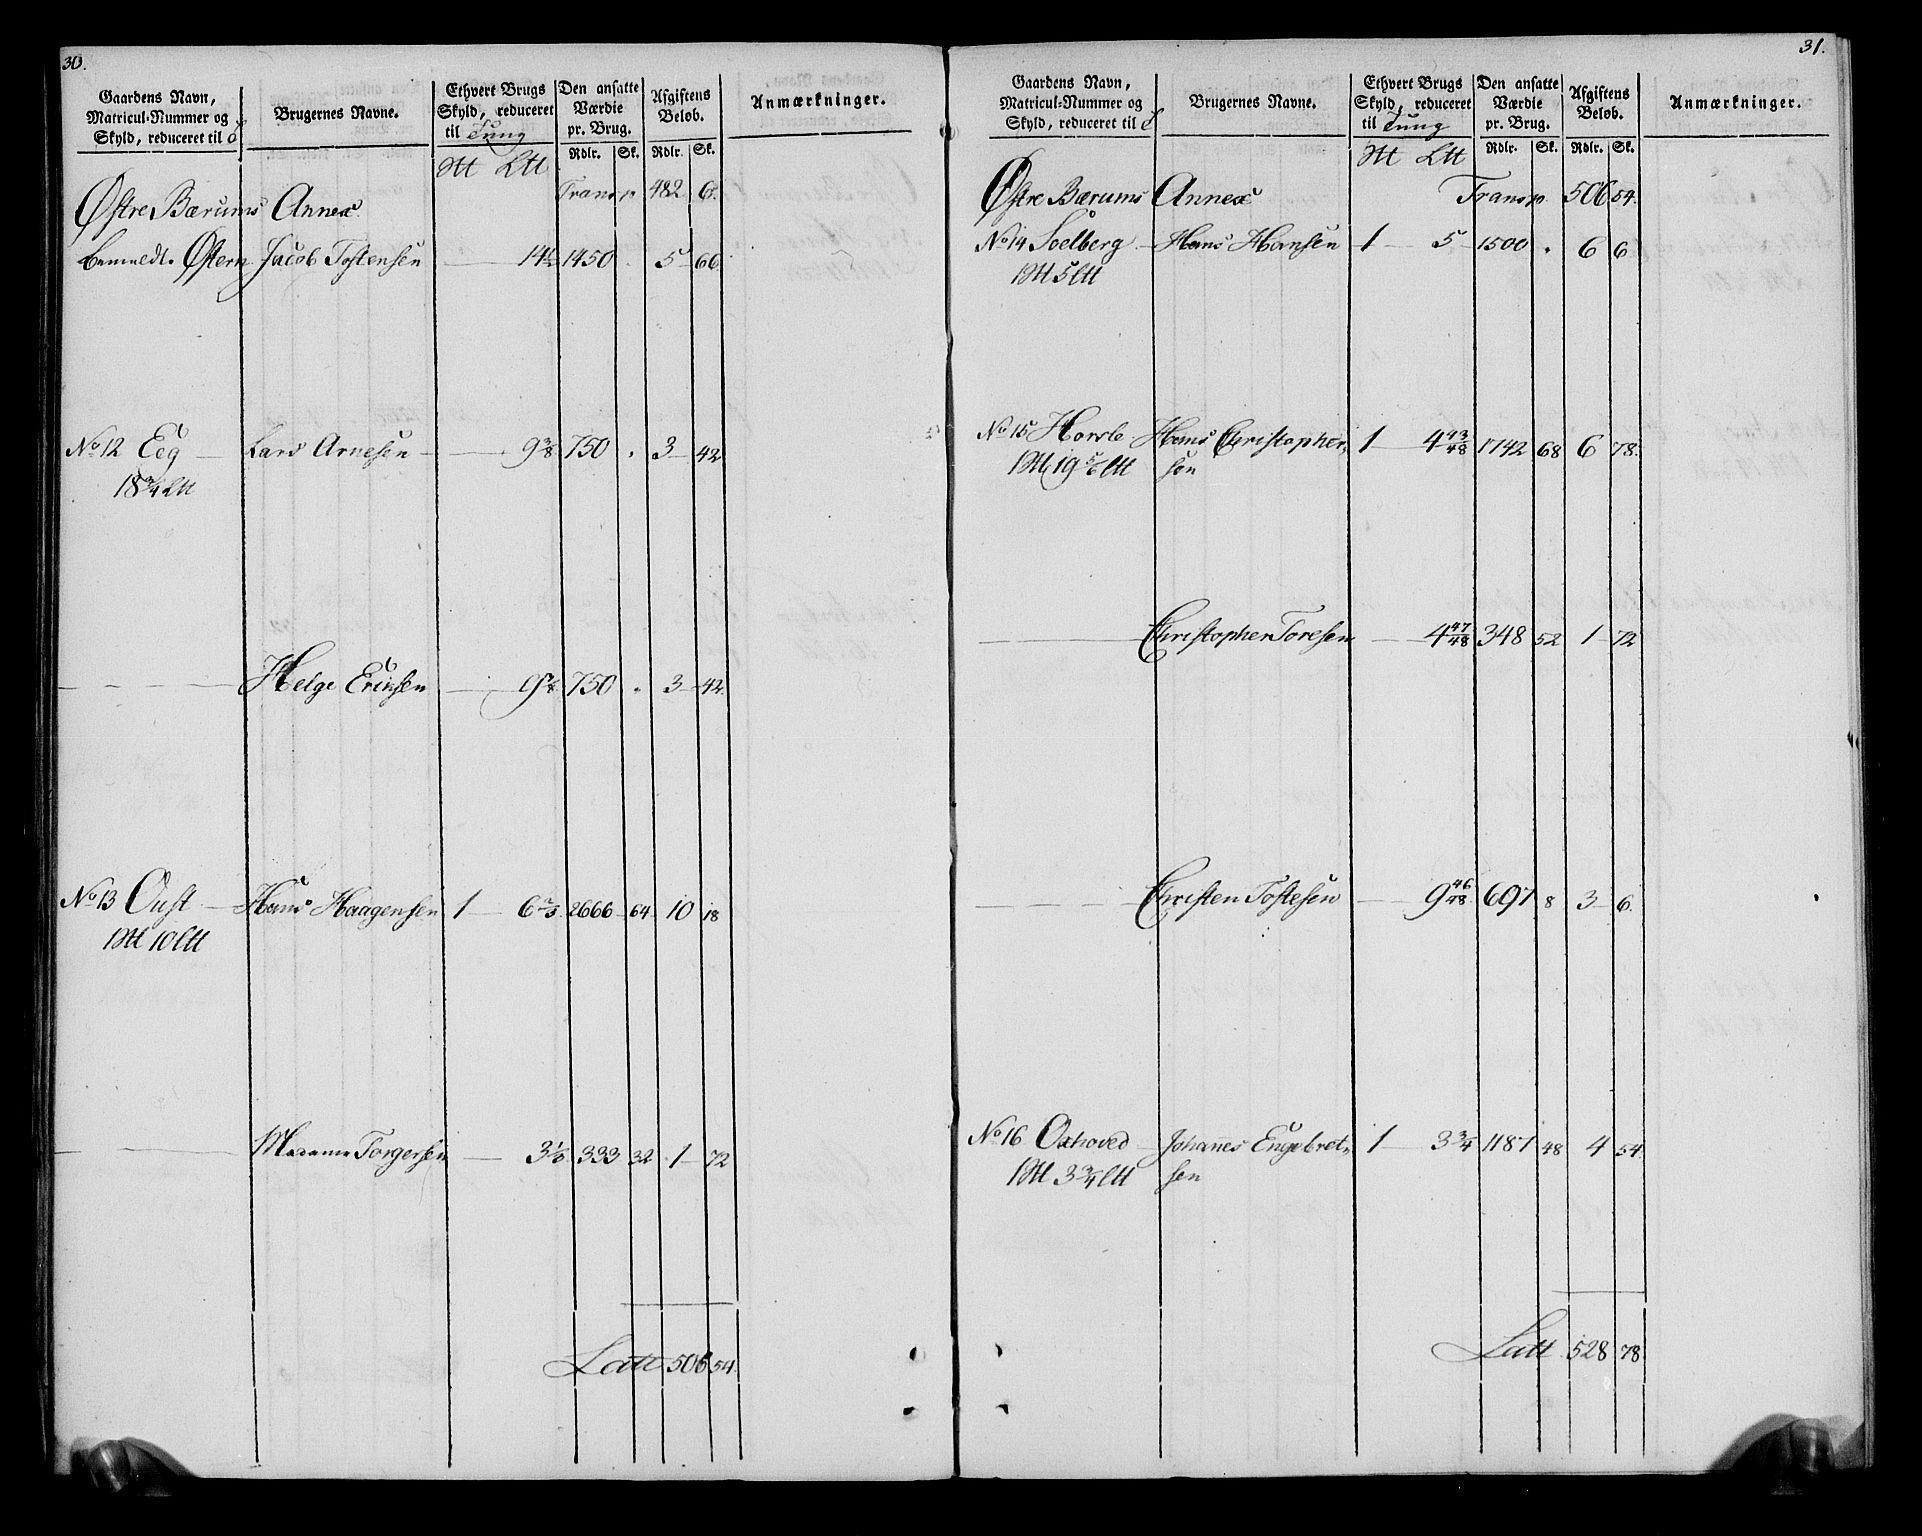 30.
Gaardens Navn, Matricul-Nummer og Skyld, reduceret til
Brugernes Navne.
Ethvert Brugs Skyld, reduceret til Tung
Den ansatte Værdie pr. Brug.
Afgiftens Beløb.
Anmærkninger.
Rdlr. Sk. Rdlr. Sk.
Østre Bærums Annex Transp 482 6.
Østern Jacob Tostensen 14½ 1450 . 5 66
No 12 Eeg Lars Arnesen 9 3/8 750 . 3 42
18 3/4 Ltt
Helge Ericksen 9 3/8 750 . 3 42
No 13 Oust Hans Haagensen 1 6 2/3 2666 64 10 18
1 Mtt 10 Ltt
Madame Torgersen 3 1/3 333 32 1 72
Latt 506 54
31.
Gaardens Navn, Matricul-Nummer og Skyld, reduceret til
Brugernes Navne.
Ethvert Brugs Skyld, reduceret til Tung
Den ansatte Værdie pr. Brug.
Afgiftens Beløb.
Anmærkninger.
Rdlr. Sk. Rdlr. Sk.
Østre Bærums Annex Transp. 506 54.
No 14 Soelberg Hans Hansen 1 5 1500 . 6 6
1 Mtt 5 Ltt
No 15 Horsle Hans Christopher- 1 4 43/48 1742 68 6 78.
1 Mtt 19 5/6 Ltt sen
Christopher Toresen 4 47/48 348 52 1 72
Christen Tostesen 9 46/48 697 8 3 6.
No 16 Oxhoved Johanes Engebret- 1 3 3/4 1187 48 4 54.
1 Mtt 3 3/4 Ltt sen
Latt 528 78.